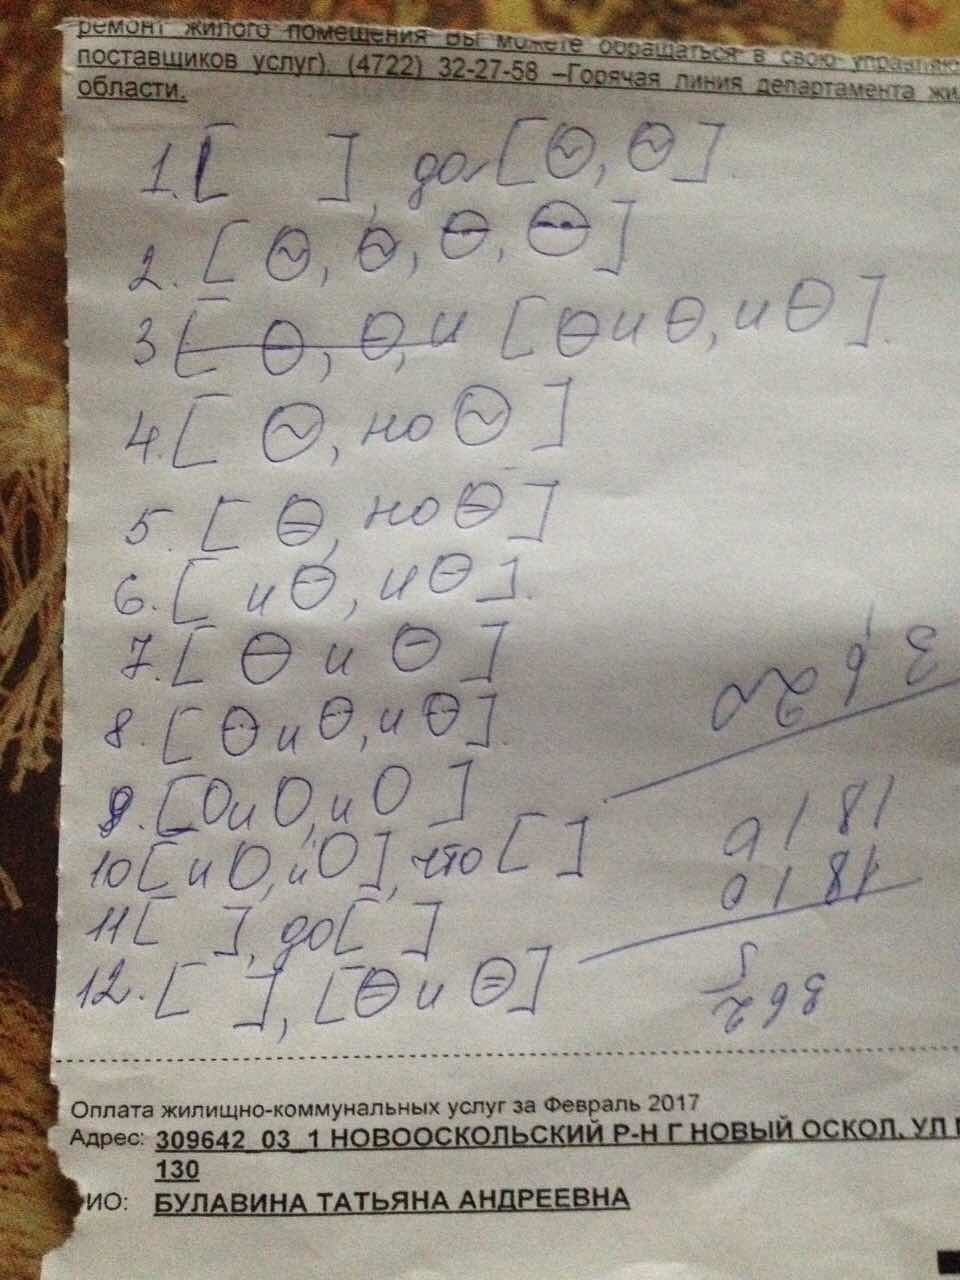 ремонт жилого помещения Вы можете обращаться в свою управляю
поставщиков услуг). (4722) 32-27-58 –Горячая линия департамента жил
области.
1. [ ], да [⊖, ⊖].
2. [⊖, ⊖, ⊖, ⊖]
3 [⊖, ⊖, и [⊖ и ⊖, и ⊖].
4. [⊖, но ⊖]
5. [⊖, но ⊖]
6. [и ⊖, и ⊖].
7. [⊖ и ⊖]
8. [⊖ и ⊖, и ⊖].
9. [О и О, и О]
10 [и О, и О], что [ ]
11 [ ], до [ ]
12. [ ], [⊖ и ⊖]
Оплата жилищно-коммунальных услуг за Февраль 2017
Адрес: 309642_03_1 НОВООСКОЛЬСКИЙ Р-Н Г НОВЫЙ ОСКОЛ, УЛ
130
ИО: БУЛАВИНА ТАТЬЯНА АНДРЕЕВНА